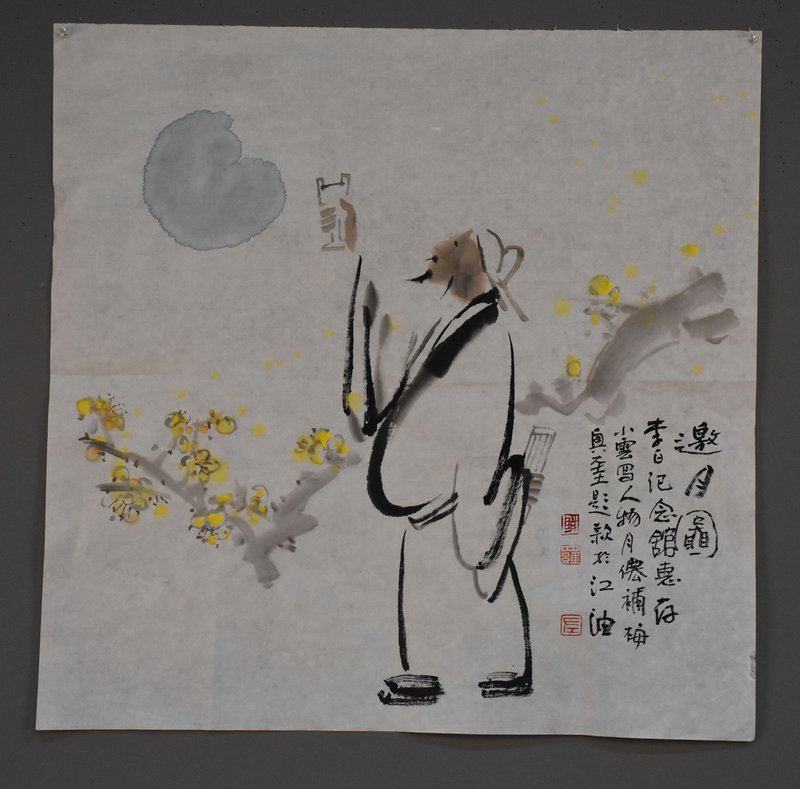 邀月圖
李白紀念館惠存
小雲寫人物月儂補梅
奐奎題款於江油